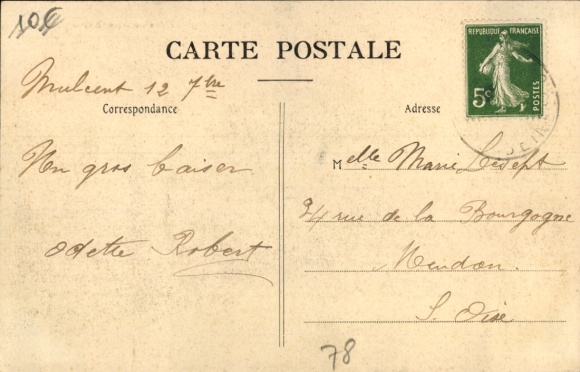 10€
CARTE POSTALE
RÉPUBLIQUE FRANÇAISE
5c
POSTES
Mulcent 12 7bre
Correspondance
Adresse
Un gros baiser
Odette Robert
Melle Marie Lesept
24 rue de la Bourgogne
Meudon.
S. Oise
78